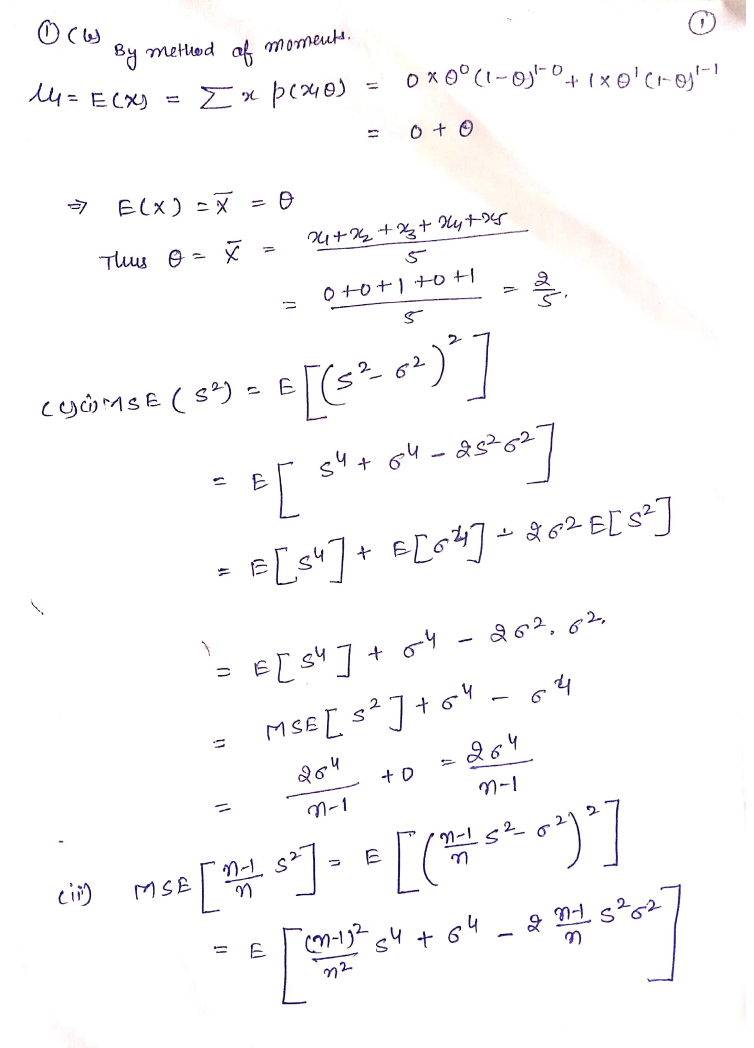 ①
① (b) By method of moments.
μ₁ = E(X) = Σ x p(x,θ) = 0 × θ⁰ (1-θ)¹⁻⁰ + 1 × θ¹ (1-θ)¹⁻¹
= 0 + θ
⇒ E(X) = x̄ = θ
Thus θ = x̄ = x₁ + x₂ + x₃ + x₄ + x₅ / 5
= 0 + 0 + 1 + 0 + 1 / 5 = 2/5.
(i) MSE (s²) = E[(s² - σ²)²]
= E[s⁴ + σ⁴ - 2s²σ²]
= E[s⁴] + E[σ⁴] - 2σ² E[s²]
= E[s⁴] + σ⁴ - 2σ². σ².
= MSE[s²] + σ⁴ - σ⁴
= 2σ⁴/n-1 + 0 = 2σ⁴/n-1
(ii) MSE[n-1/n s²] = E[(n-1/n s² - σ²)²]
= E[(n-1)²/n² s⁴ + σ⁴ - 2 n-1/n s²σ²]